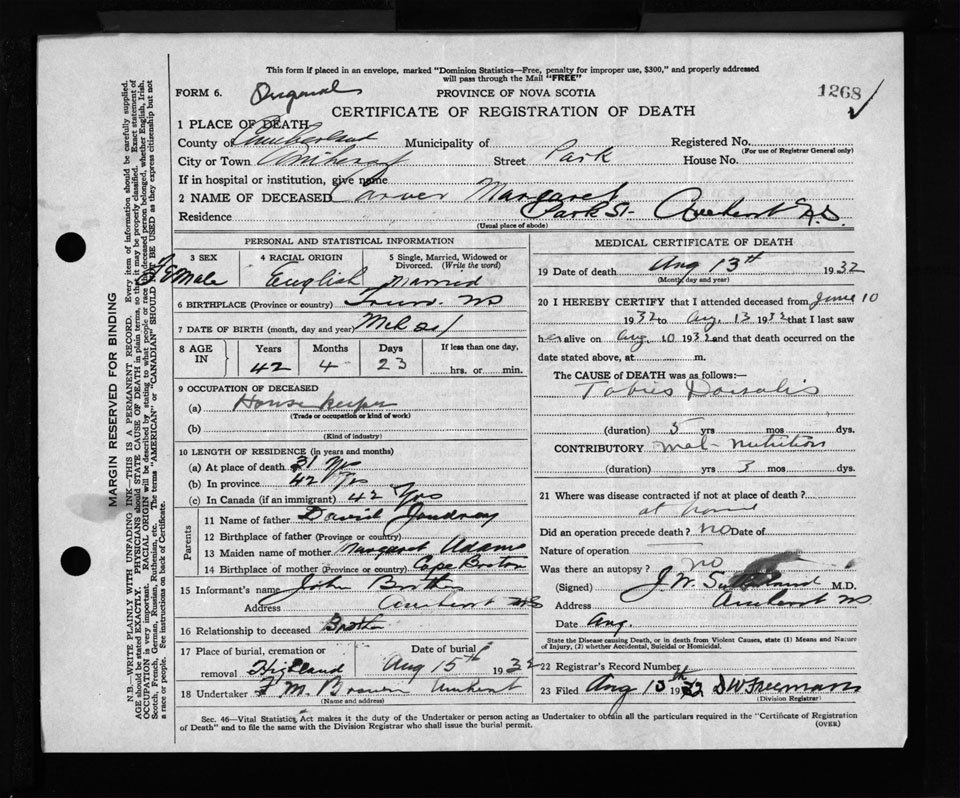 This form if placed in an envelope, marked "Dominion Statistics—Free, penalty for improper use, $300," and properly addressed
will pass through the Mail "FREE"
FORM 6. Original PROVINCE OF NOVA SCOTIA 1268
CERTIFICATE OF REGISTRATION OF DEATH
1 PLACE OF DEATH
County of Cumberland Municipality of Registered No.
(For use of Registrar General only)
City or Town Amherst Street Park House No.
If in hospital or institution, give name
2 NAME OF DECEASED Carver Margaret
Residence Park St- Amherst N.S.
(Usual place of abode)
PERSONAL AND STATISTICAL INFORMATION
3 SEX 4 RACIAL ORIGIN 5 Single, Married, Widowed or
Divorced. (Write the word)
FeMale English Married
6 BIRTHPLACE (Province or country) Truro NS
7 DATE OF BIRTH (month, day and year)
8 AGE IN Years Months Days If less than one day,
42 4 23 hrs. or min.
9 OCCUPATION OF DECEASED
(a) House keeper
(Trade or occupation or kind of work)
(b)
(Kind of industry)
10 LENGTH OF RESIDENCE (in years and months)
(a) At place of death 31 Yrs
(b) In province 42 Yrs
(c) In Canada (if an immigrant) 42 Yrs
Parents
11 Name of father David
12 Birthplace of father (Province or country)
13 Maiden name of mother Margaret Adams
14 Birthplace of mother (Province or country) Cape Breton
15 Informant's name John
Address Amherst NS
16 Relationship to deceased Brother
17 Place of burial, cremation or Date of burial
removal Highland Aug 15th 1932
18 Undertaker F M Brown Amherst
(Name and address)
MEDICAL CERTIFICATE OF DEATH
19 Date of death Aug 13th 1932
(Month, day and year)
20 I HEREBY CERTIFY that I attended deceased from June 10
1932 to Aug. 13 1932 that I last saw
her alive on Aug. 10 1932 and that death occurred on the
date stated above, at m.
The CAUSE of DEATH was as follows:—
Tabies Dorsalis
(duration) 5 yrs mos dys.
CONTRIBUTORY Mal-nutrition
(duration) yrs 3 mos. dys.
21 Where was disease contracted if not at place of death?
at home
Did an operation precede death? no Date of
Nature of operation
Was there an autopsy? no
(Signed) J. W. Sutherland M.D.
Address Amherst NS
Date Aug.
State the Disease causing Death, or in death from Violent Causes, state (1) Means and Nature
of Injury, (2) whether Accidental, Suicidal or Homicidal.
22 Registrar's Record Number
23 Filed Aug 15th 1932 Freeman
(Division Registrar)
Sec. 46—Vital Statistics Act makes it the duty of the Undertaker or person acting as Undertaker to obtain all the particulars required in the "Certificate of Registration
of Death" and to file the same with the Division Registrar who shall issue the burial permit. (OVER)
MARGIN RESERVED FOR BINDING
N.B.—WRITE PLAINLY WITH UNFADING INK—THIS IS A PERMANENT RECORD. Every item of information should be carefully supplied.
AGE should be stated EXACTLY. PHYSICIANS should STATE CAUSE OF DEATH in plain terms, so that it may be properly classified. Exact statement of
OCCUPATION is very important. RACIAL ORIGIN will be described by stating to what people or race the deceased person belonged, whether English, Irish,
Scotch, French, German, Russian, Ruthenian, etc. The terms "AMERICAN" or "CANADIAN" SHOULD NOT BE USED as they express citizenship but not
a race or people. See instructions on back of Certificate.